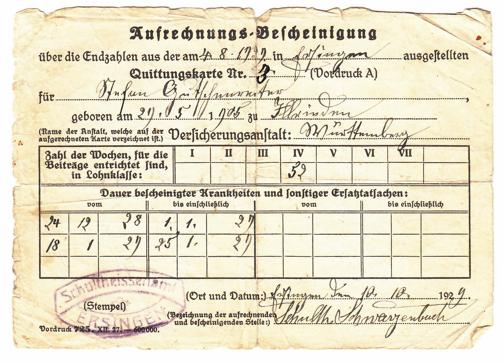 Aufrechnungs-Bescheinigung
über die Endzahlen aus der am 4. 8. 1929 in Ersingen ausgestellten
Quittungskarte Nr. 3 (Vordruck A)
für Stefan
geboren am 29. 5. 1905 zu
(Name der Anstalt, welche auf der aufgerechneten Karte verzeichnet ist.) Versicherungsanstalt: Württemberg
Zahl der Wochen, für die Beiträge entrichtet sind, in Lohnklasse:
I II III IV V VI VII
52
Dauer bescheinigter Krankheiten und sonstiger Ersatztatsachen:
vom bis einschließlich vom bis einschließlich
24 12 28 1. 1. 29
18 1 29 25 1. 29
Schultheissenamt
ERSINGEN
(Stempel)
(Ort und Datum:) Ersingen den 10. 10. 1929
(Bezeichnung der aufrechnenden und bescheinigenden Stelle:) Schulth. Schwarzenbach
Vordruck 725. XII. 27. — 600000.